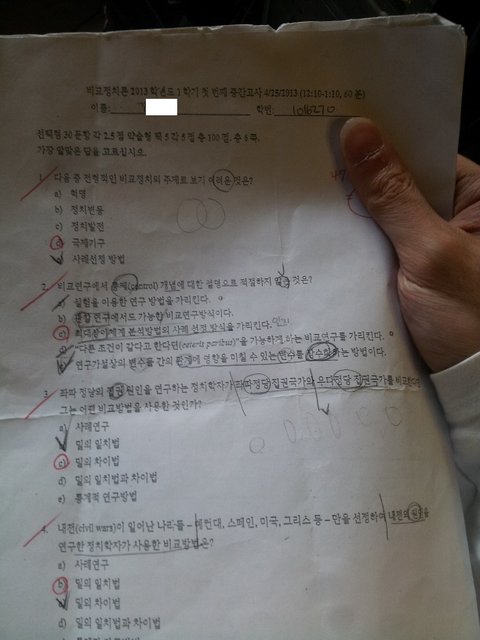 비교정치론 2013 학년도 1 학기 첫 번째 중간고사 4/25/2013 (12:10-1:10, 60 분)
이름: 학번: 1016270
선택형 30 문항 각 2.5 점 약술형 택 5 각 5 점 총 100 점. 총 6 쪽.
가장 알맞은 답을 고르십시오.
47
1. 다음 중 전형적인 비교정치의 주제로 보기 어려운 것은?
a) 혁명
b) 정치변동
c) 정치발전
d) 국제기구
e) 사례선정 방법
2. 비교연구에서 통제(control) 개념에 대한 설명으로 적절하지 않은 것은?
a) 실험을 이용한 연구 방법을 가리킨다.
b) 관찰 연구에서도 가능한 비교연구방식이다.
c) 최대상이체계 분석방법의 사례 선정 방식을 가리킨다.
d) "다른 조건이 같다고 한다면(ceteris paribus)"을 가능하게 하는 비교연구를 가리킨다.
e) 연구가설상의 변수들 간의 관계에 영향을 미칠 수 있는 변수를 상수화하는 방법이다.
3. 좌파 정당의 집권 원인을 연구하는 정치학자가 좌파정당 집권국가와 우파정당 집권국가를 비교한다면
그는 어떤 비교방법을 사용한 것인가?
a) 사례연구
b) 밀의 일치법
c) 밀의 차이법
d) 밀의 일치법과 차이법
e) 통계적 연구방법
4. 내전(civil wars)이 일어난 나라들 – 예컨대, 스페인, 미국, 그리스 등 – 만을 선정하여 내전의 원인을
연구한 정치학자가 사용한 비교방법은?
a) 사례연구
b) 밀의 일치법
c) 밀의 차이법
d) 밀의 일치법과 차이법